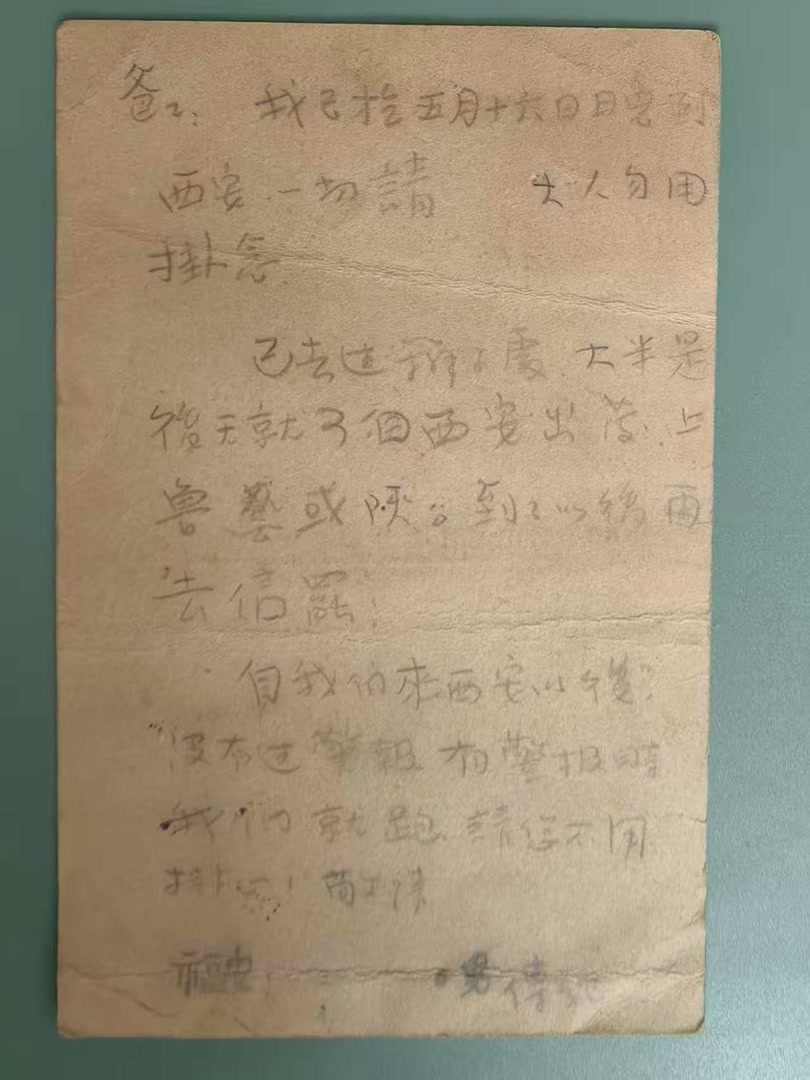 爸々：我已於五月十六日日宵到
西安.一切請 大人勿用
掛念.
已去过辦事處.大半是
後天就了個西安出發.上
魯藝或陝公.到了以後再
去信罷！
自我们來西安以後.
沒有过警報.有警报時
我们就跑.請您不用
掛
福安 男傳